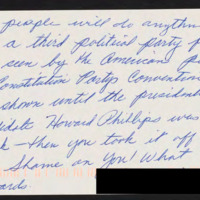 people will do anything
a third political party
seen by the American
Constitution Partys Convention
shown until the president
idate Howard Phillips was
k – then you took it off
Shame on You! What
ards